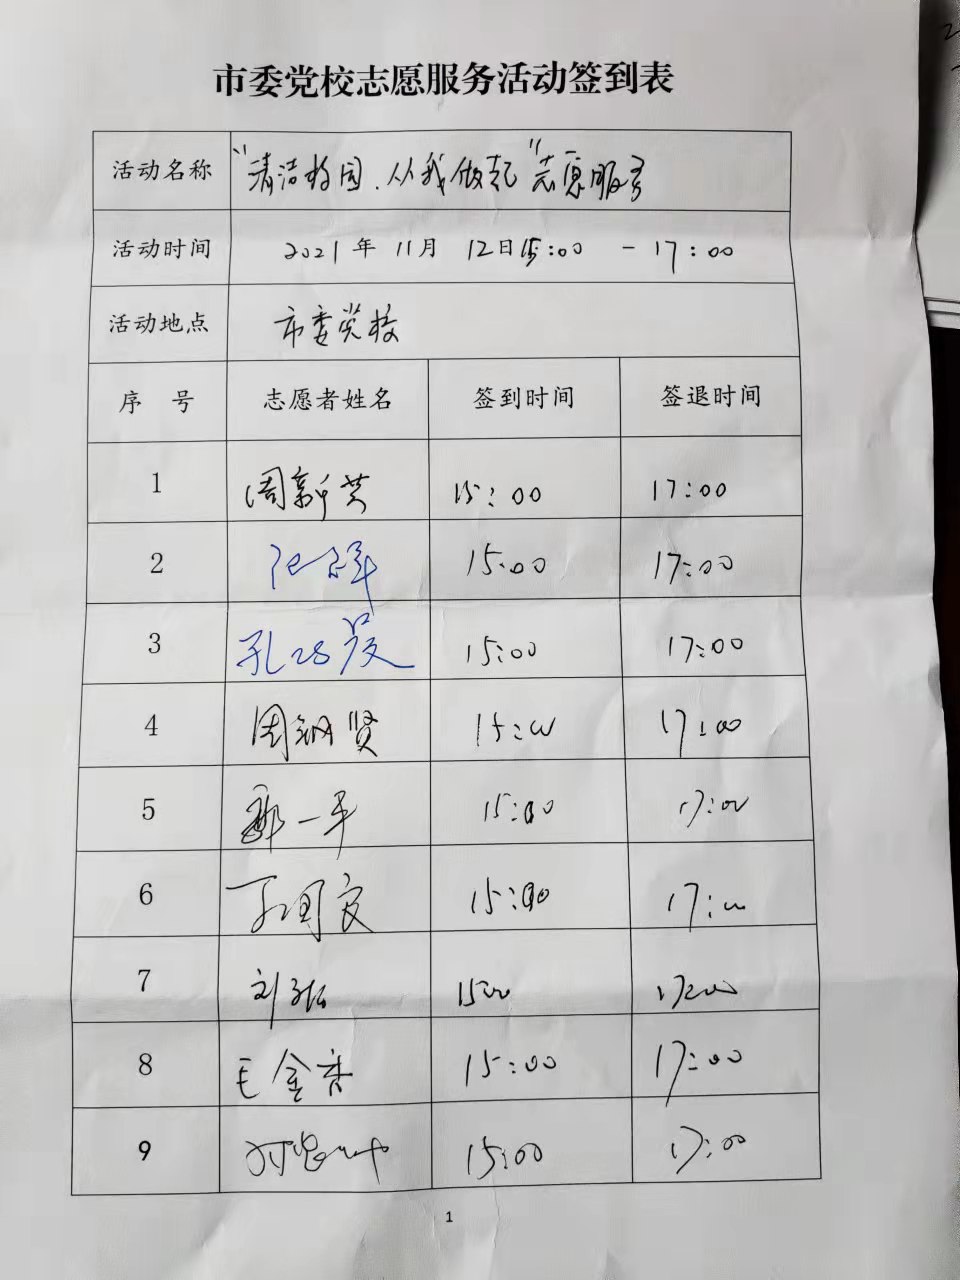 市委党校志愿服务活动签到表
活动名称 "清洁校园、从我做起"志愿服务
活动时间 2021年 11月 12日 15:00 - 17:00
活动地点 市委党校
序 号 志愿者姓名 签到时间 签退时间
1 周新芬 15:00 17:00
2 15:00 17:00
3 15:00 17:00
4 周钢贤 15:00 17:00
5 郭一平 15:00 17:00
6 15:00 17:00
7 15:00 17:00
8 毛金香 15:00 17:00
9 15:00 17:00
1